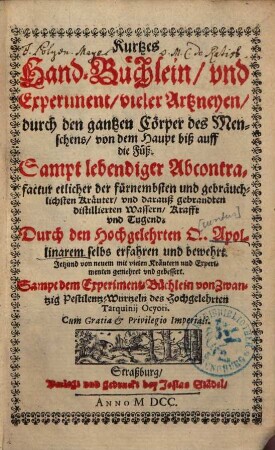 Kurtzes
Hand-Büchlein/ vnd
Experiment/ vieler Artzneyen/
durch den gantzen Cörper des Men-
schens/ von dem Haupt biß auff
die Füß.
Sampt lebendiger Abcontra-
factur etlicher der fürnembsten und gebräuch-
lichsten Kräuter/ und darauß gebrandten
distillierten Wassern/ Krafft
und Tugend:
Durch den Hochgelehrten Q. Apol-
linarem selbs erfahren und bewehrt.
Jetzund von neuem mit vielen Kräutern und Experi-
menten gemehret und gebessert.
Sampt dem Experiment-Büchlein von Zwan-
tzig Pestilentz-Wurtzeln des Hochgelehrten
Tarquinij Ocyori.
Cum Gratia & Privilegio Imperiali.
Straßburg/
Verlegt und gedruckt bey Josias Städel/
ANNO M DCC.